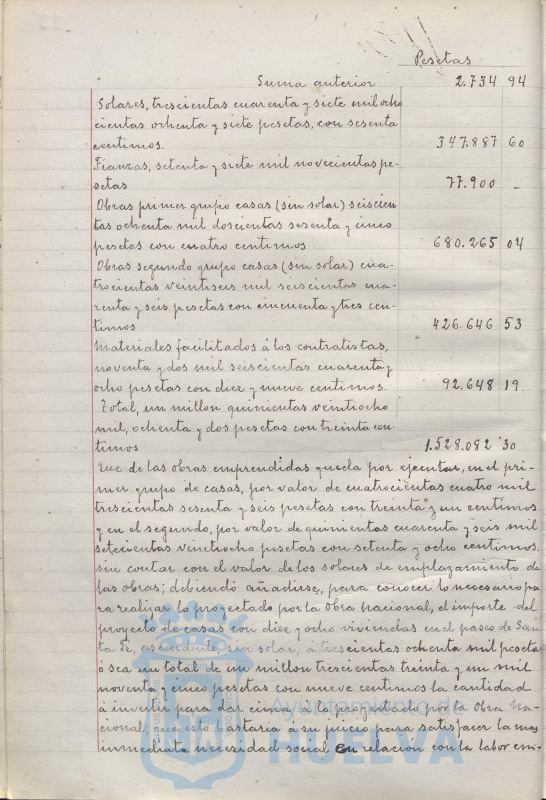 Pesetas
Suma anterior 2.734 94
Solares, trescientas cuarenta y siete mil ocho
cientas ochenta y siete pesetas, con sesenta
centimos. 347.887 60
Fianzas, setenta y siete mil novecientas pe-
setas 77.900 -
Obras primer grupo casas (sin solar) seiscien
tas ochenta mil doscientas sesenta y cinco
pesetas con cuatro centimos 680.265 04
Obras segundo grupo casas (sin solar) cua-
trocientas veintiseis mil seiscientas cua-
renta y seis pesetas con cincuenta y tres cen-
timos 426.646 53
Materiales facilitados á los contratistas,
noventa y dos mil seiscientas cuarenta y
ocho pesetas con diez y nueve centimos. 92.648 19
Total, un millon quinientas veintiocho
mil, ochenta y dos pesetas con treinta cen-
timos 1.528.082 30
Que de las obras emprendidas queda por ejecutar, en el pri-
mer grupo de casas, por valor de cuatrocientas cuatro mil
trescientas sesenta y seis pesetas con treinta y un centimos
y en el segundo, por valor de quinientas cuarenta y seis mil
setecientas veintiocho pesetas con setenta y ocho centimos,
sin contar con el valor de los solares de emplazamiento de
las obras; debiendo añadirse, para conocer lo necesario pa
ra realizar lo proyectado por la Obra nacional, el importe del
proyecto de casas con diez y ocho viviendas en el paseo de San
ta Fe, ascendente, sin solar, á trescientas ochenta mil pesetas
ó sea un total de un millon trescientas treinta y un mil
noventa y cinco pesetas con nueve centimos la cantidad
á invertir para dar cima á lo proyectado por la Obra na-
cional; que esto bastaria a su juicio para satisfacer la mas
inmediata necesidad social en relación con la labor em-
Ayuntamiento de
HUELVA